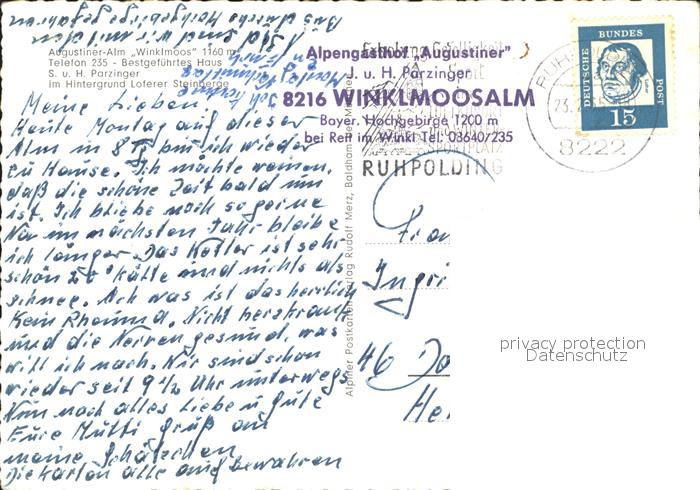 Augustiner-Alm „Winklmoos" 1160 m
Telefon 235 - Bestgeführtes Haus
S. u. H. Parzinger
im Hintergrund Loferer Steinberge
Meine Lieben!
Heute Montag auf dieser
Alm in 8 Tg bin ich wieder
zu Hause. Ich möchte weinen,
daß die schöne Zeit bald um
ist. Ich bliebe noch so gerne
Na im nächsten Jahr bleibe
ich länger. Das Wetter ist sehr
schön 20° Kälte und nichts als
Schnee. Ach was ist das herrlich
Kein Rheuma. Nicht herzkrank
und die Nerven gesund, was
will ich noch. Wir sind schon
wieder seit 9 1/2 Uhr unterwegs
Nun noch alles Liebe u gute
Eure Mutti Gruß an
meine Schätzchen
Die Karten alle aufbewahren
Alpengasthof „Augustiner"
J. u. H. Parzinger
8216 WINKLMOOSALM
Bayer. Hochgebirge 1200 m
bei Reit im Winkl Tel. 03640/235
SPORTPLATZ
RUHPOLDING
8222
DEUTSCHE BUNDES POST
15
Alpiner Postkartenverlag Rudolf Merz, Baldham
Frau
Ingri
46 Do
privacy protection
Datenschutz